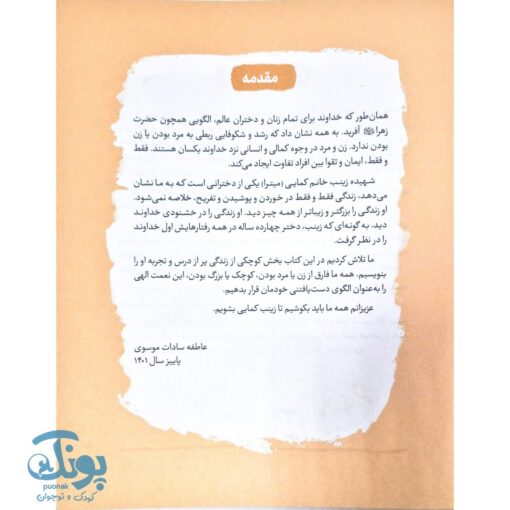 مقدمه
همان‌طور که خداوند برای تمام زنان و دختران عالم، الگویی همچون حضرت
زهرا آفرید. به همه نشان داد که رشد و شکوفایی ربطی به مرد بودن یا زن
بودن ندارد. زن و مرد در وجوه کمالی و انسانی نزد خداوند یکسان هستند. فقط
و فقط، ایمان و تقوا بین افراد تفاوت ایجاد می‌کند.
شهیده زینب خانم کمایی (میترا) یکی از دخترانی است که به ما نشان
می‌دهد، زندگی فقط و فقط در خوردن و پوشیدن و تفریح، خلاصه نمی‌شود.
او زندگی را بزرگتر و زیباتر از همه چیز دید. او زندگی را در خشنودی خداوند
دید. به گونه‌ای که زینب، دختر چهارده ساله در همه رفتارهایش اول خداوند
را در نظر گرفت.
ما تلاش کردیم در این کتاب بخش کوچکی از زندگی پر از درس و تجربه او را
بنویسیم. همه ما فارق از زن یا مرد بودن، کوچک یا بزرگ بودن، این نعمت الهی
را به‌عنوان الگوی دست‌یافتنی خودمان قرار بدهیم.
عزیزانم همه ما باید بکوشیم تا زینب کمایی بشویم.
عاطفه سادات موسوی
پاییز سال ۱۴۰۱
پونک
puonak
کودک و نوجوان